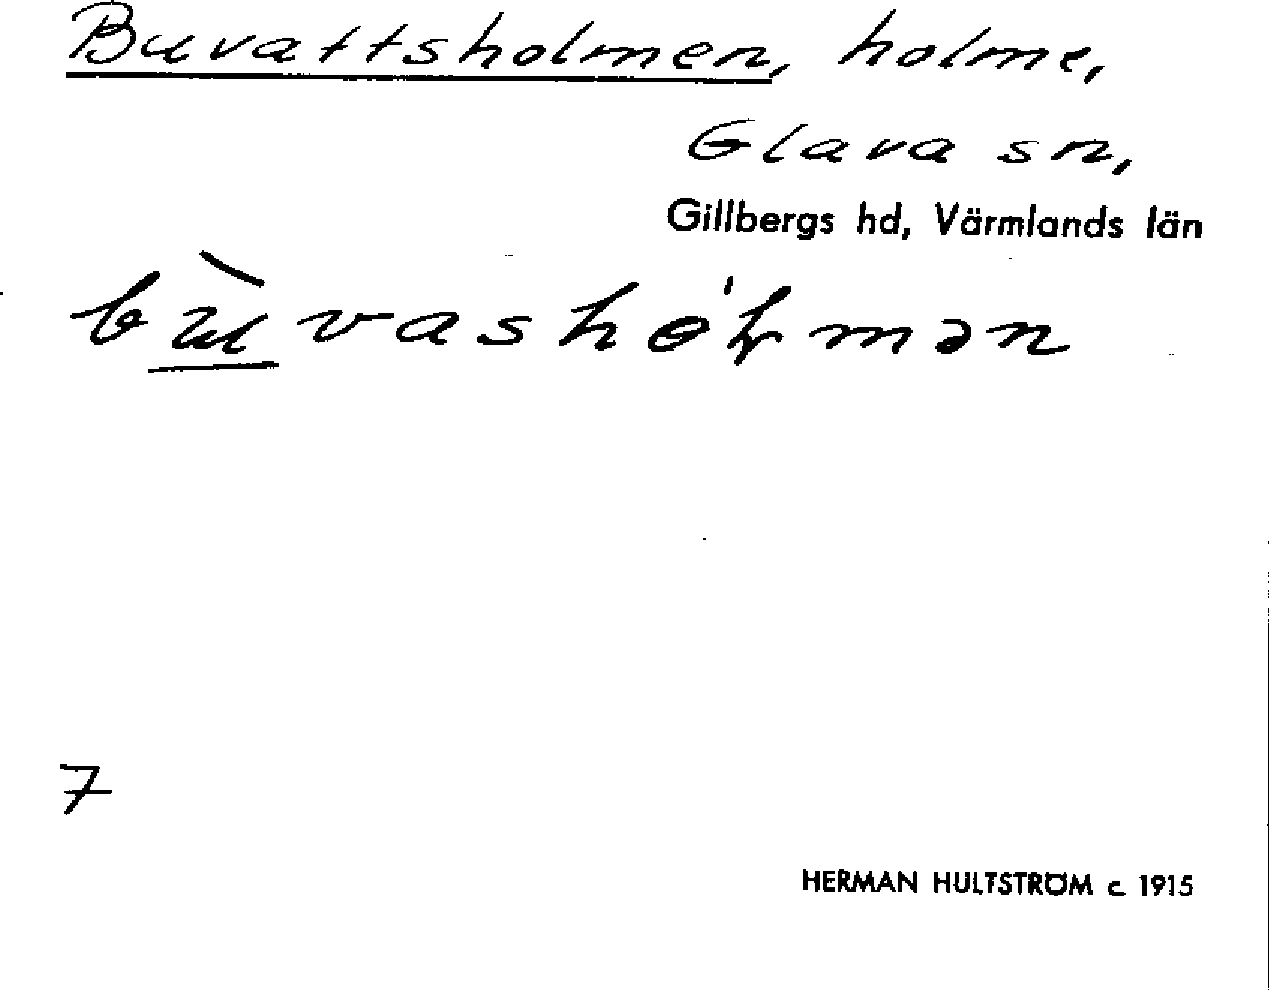 Buvattsholmen, holme,
Glava sn,
Gillbergs hd, Värmlands län
bùvashɵ'ɽmən
7
HERMAN HULTSTRÖM c 1915